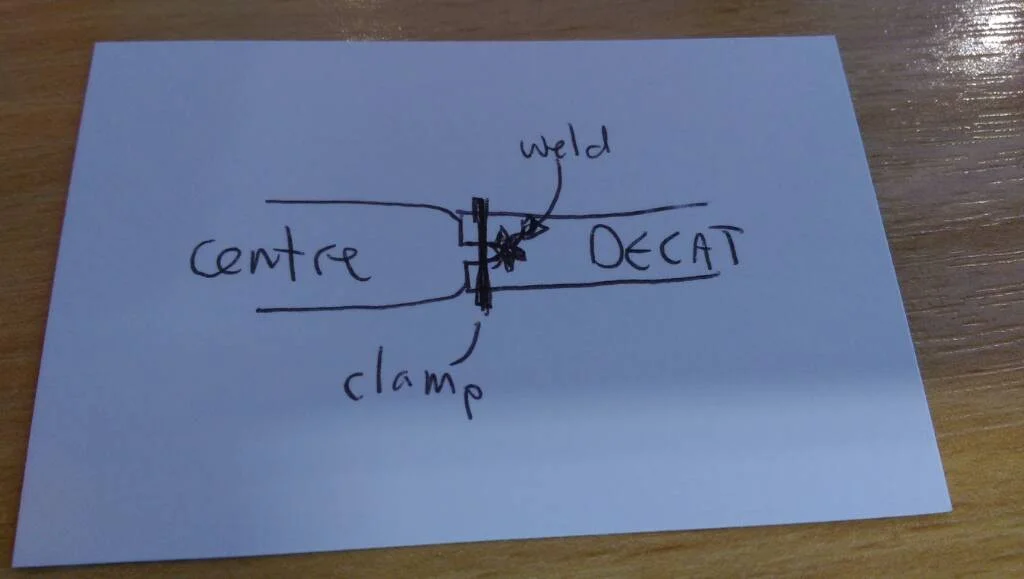 weld
centre DECAT
clamp